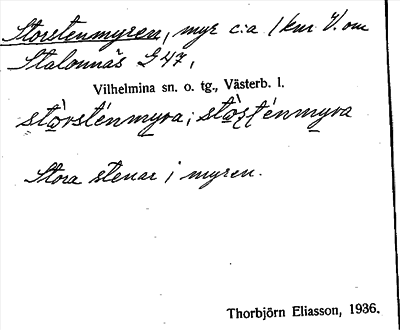 Storstenmyren, myr c:a 1 km V. om
Stalonnäs G 47,
Vilhelmina sn. o. tg., Västerb. l.
stòrsténmyra; stòṣṭénmyra
Stora stenar i myren.
Thorbjörn Eliasson, 1936.